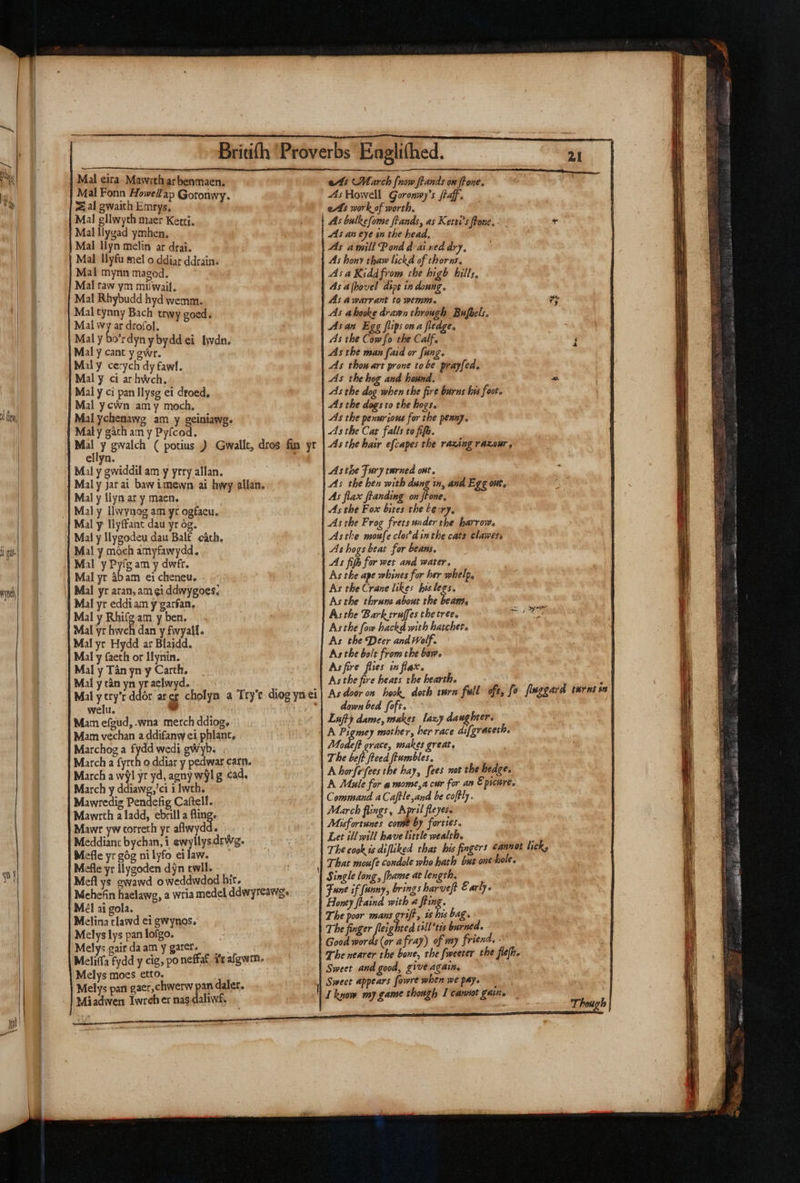 Britiſh Proverbs Engliſhed.
21
Mal eira Mawrth ar benmaen.
Mal Fonn Howell ap Goronwy.
Mal gwaith Emrys.
Mal gllwyth maer Kerri.
Mal llygad ymhen.
Mal llyn melin ar drai.
Mal llyfu mel o ddiar ddrain.
Mal mynn magod.
Mal raw ym mliwail.
Mal Rhybudd hyd wemm.
Mal tynny Bach trwy goed.
Mal wy ar droſol.
Mal y bo'r dyn y bydd ei lwdn.
Mal y cant y gŵr.
Mal y cerych dy fawl.
Mal y ci ar hŵch.
Mal y ci pan llyſg ei droed.
Mal y cŵn am y moch.
Mal ychenawg am y geiniawg.
Mal y gàth am y Pyſcod.
Mal y gwalch ( potius ) Gwallt, dros fin yr
ellyn.
Mal y gwiddil am y yrry allan.
Mal y jar ai baw imewn ai hwy allan.
Mal y llyn ar y maen.
Mal y llwynog am yr ogfaeu.
Mal y llyffant dau yr òg.
Mal y llygodeu dau Balf càth.
Mal y móch amyfawydd.
Mal y Pyſg am y dwfr.
Mal yr âb am ei cheneu.
Mal yr aran, am gi ddwygoes.
Mal yr eddi am y garfan.
Mal y Rhiſg am y ben.
Mal yr hwch dan y fwyall.
Mal yr Hydd ar Blaidd.
Mal y ſaeth or llynin.
Mal y Tàn yn y Carth.
Mal y tàn yn yr aelwyd.
Mal y try'r ddór ar er cholyn a Try'r diog yn ei
welu.
Mam eſgud, wna merch ddiog.
Mam vechan a ddifanw ei phlant.
Marchog a fydd wedi gŵyb.
March a fyrth o ddiar y pedwar carn.
March a wŷl yr yd, ag ny wŷl g cad.
March y ddiawg,'ci i lwth.
Mawredig Pendefig Caſtell.
Mawrth a ladd, ebrill a fling.
Mawr yw correth yr aflwydd.
Meddiant bychan, i ewyllys drŵg.
Meſle yr gòg ni lyfo ei law.
Meſle yr llygoden dŷn twll.
Mefl ys gwawd o weddwdod hir.
Mehefin haelawg, a wria medel ddwyreawg.
Mêl ai gola.
Melina tlawd ei gwynos.
Melys lys pan loſgo.
Melys gair da am y garer.
Meliſſa fydd y cig, po neſſaf i'r aſgwrn.
Melys moes etto.
Melys pan gaer, chwerw pan daler.
Miadwen Iwrch er nas daliwf.
As March ſnow ſtands on ſtone.
As Howell Goronwy's ſtaff.
As work of worth.
As bulkeſome ſtands, as Kerri's ſtone.
As an eye in the head.
As a mill Pond d ai ned dry.
As hony thaw lickd of thorns.
As a Kidd from the high hills.
As a ſhovel dips in doung.
As a warrant to wemm.
As a hooke drawn through Buſhels.
As an Egg ſlips on a ſledge.
As the Cow ſo the Calf.
As the man ſaid or ſung.
As thou art prone to be prayſed.
As the hog and hound.
As the dog when the fire burns his foot.
As the dogs to the hogs.
As the penurious for the penny.
As the Cat falls to fiſh.
As the hair eſcapes the razing razour,
As the Fury turned out.
As the hen with dung in, and Egg out.
As flax ſtanding on ſtone.
As the Fox bites the berry.
As the Frog frets under the harrow.
As the mouſe clos'd in the cats clawes.
As hogs beat for beans.
As fiſh for wet and water.
As the ape whines for her whelp.
As the Crane likes his legs.
As the thrum about the beam.
As the Bark truſſes the tree.
As the ſow hackd with hatchet.
As the Deer and Wolf.
As the bolt from the bow.
As fire flies in flax.
As the fire heats the hearth.
As door on hook, doth turn full oft, ſo ſluggard turns in
down bed ſoft.
Luſty dame, makes lazy daughter.
A Pigmey mother, her race diſgraceth.
Modeſt grace, makes great.
The beſt ſteed ſtumbles.
A horſe ſees the hay, ſees not the hedge.
A Mule for a mome, a cur for an Epicure.
Command a Caſtle, and be coſtly.
March flings, April fleyes.
Misfortunes come by forties.
Let ill will have little wealth.
The cook is diſliked that his fingers cannot lick,
That mouſe condole who hath but one hole.
Single long, ſhame at length.
June if ſunny, brings harveſt Early.
Honey ſtaind with a ſting.
The poor mans griſt, is his bag.
The finger ſleighted till'tis burned.
Good words (or a fray) of my friend.
The nearer the bone, the ſweeter the fleſh.
Sweet and good, give again.
Sweet appears ſowre when we pay.
I know my game though I cannot gain.
Though